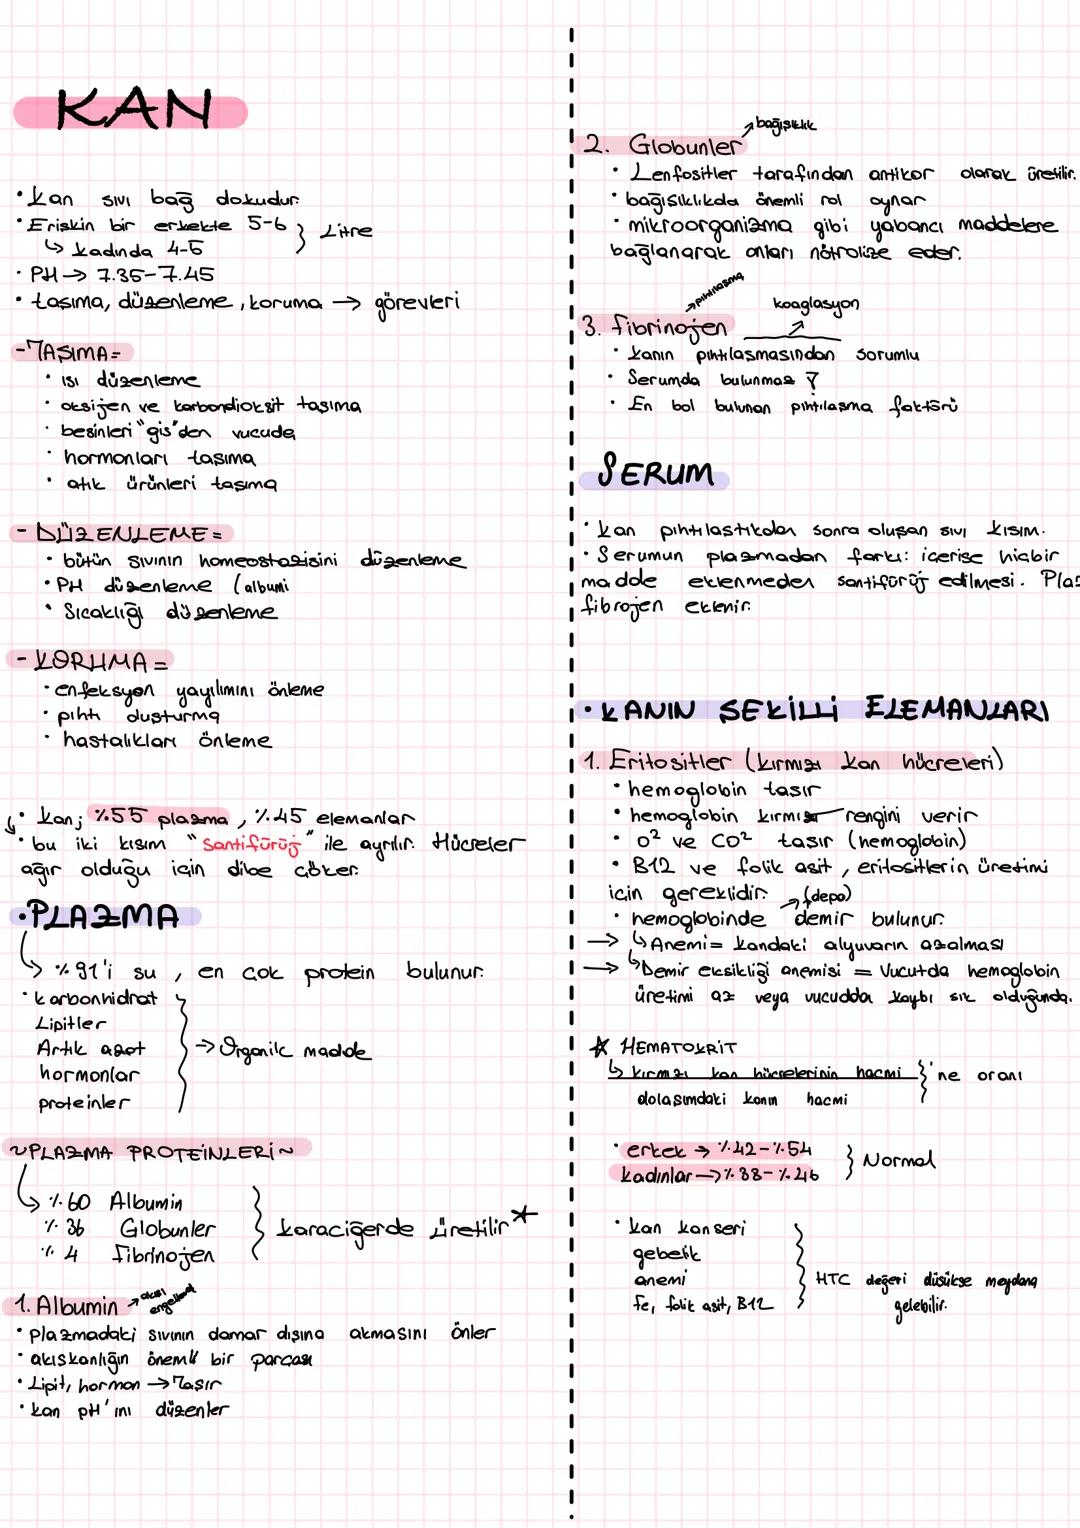 KAN
• Kan sıvı bağ dokudur.
• Eriskin bir erkekte 5-6 } Litre
↳ kadında 4-5
• PH → 7.35-7.45
• tasıma, düzenleme, koruma → görevleri
-TASIMA=
• ısı düzenleme
• oksijen ve karbondioksit tasıma
• besinleri "gis"den vucuda
• hormonları tasıma
• atık ürünleri tasıma
- DÜZENLEME=
• bütün sıvının homeostazisini düzenleme
• PH düzenleme (albumi
• Sıcaklığı düzenleme
- KORUMA=
• enfeksyon yayılımını önleme
• pıhtı olusturma
• hastalıkları önleme
• kan; %55 plazma, %45 elemanlar
• bu iki kısım "Santifürüj" ile ayrılır. Hücreler
ağır olduğu için dibe çöker.
•PLAZMA
↳ %91'i su, en cok protein bulunur.
• karbonhidrat
Lipitler
Artık azot → Organik madde
hormonlar
proteinler
~PLAZMA PROTEİNLERİ~
↳ %60 Albumin
% 36 Globunler } karaciğerde üretilir*
% 4 fibrinojen
1. Albumin → akısı engelleme
• plazmadaki sıvının damar dışına akmasını önler
• akıskanlığın önemli bir parcası
• Lipit, hormon → Tasır
• kan pH'ını düzenler
2. Globunler → bağışıklık
• Lenfositler tarafından antikor olarak üretilir.
• bağısıklıkda önemli rol oynar
• mikroorganizma gibi yabancı maddelere
bağlanarak onları nötrolize eder.
3. fibrinojen → pıhtılaşma
koaglasyon
• kanın pıhtılaşmasından sorumlu
• Serumda bulunmaz ?
• En bol bulunan pıhtılaşma faktörü
SERUM
• kan pıhtılastıkdan sonra oluşan sıvı kısım.
• Serumun plazmadan farkı: icerise hicbir
madde eklenmeden santifürüj edilmesi. Plaz
fibrojen eklenir.
• KANIN SEKİLLİ ELEMANLARI
1. Eritositler (kırmızı kan hücreleri)
• hemoglobin tasır
• hemoglobin kırmızı rengini verir
• O² ve CO² tasır (hemoglobin)
• B12 ve folik asit, eritositlerin üretimi
icin gereklidir. → (depo)
• hemoglobinde demir bulunur.
→ ↳ Anemi= kandaki alyuvarın azalması
→ ↳ Demir eksikliği anemisi = Vucutda hemoglobin
üretimi az veya vucudda kaybı sık olduğunda.
* HEMATOKRİT
↳ kırmızı kan hücrelerinin hacmi } 'ne oranı
dolasımdaki kanın hacmi
• erkek → %42-%54 } Normal
kadınlar → %38-%46
• kan kanseri
gebelik
anemi HTC değeri düsükse meydana
fe, folik asit, B12 gelebilir.